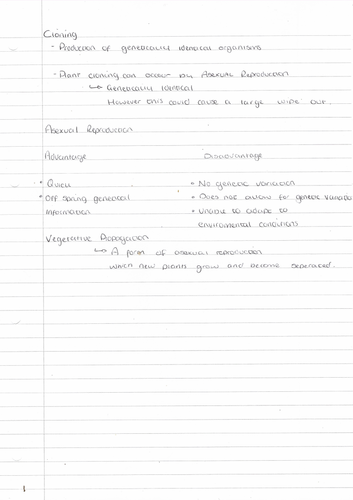 Cloning
- Production of genetically identical organisms
- Plant cloning can occur via Asexual Reproduction
↳ Genetically identical
However this could cause a large wipe out.
Asexual Reproduction
Advantage Disadvantage
• Quick • No genetic variation
• Off spring genetical • Does not allow for genetic variation
information • Unable to adapt to
enviromental conditions
Vegetative Propagation
↳ A form of asexual reproduction
which new plants grow and become seperated.
1